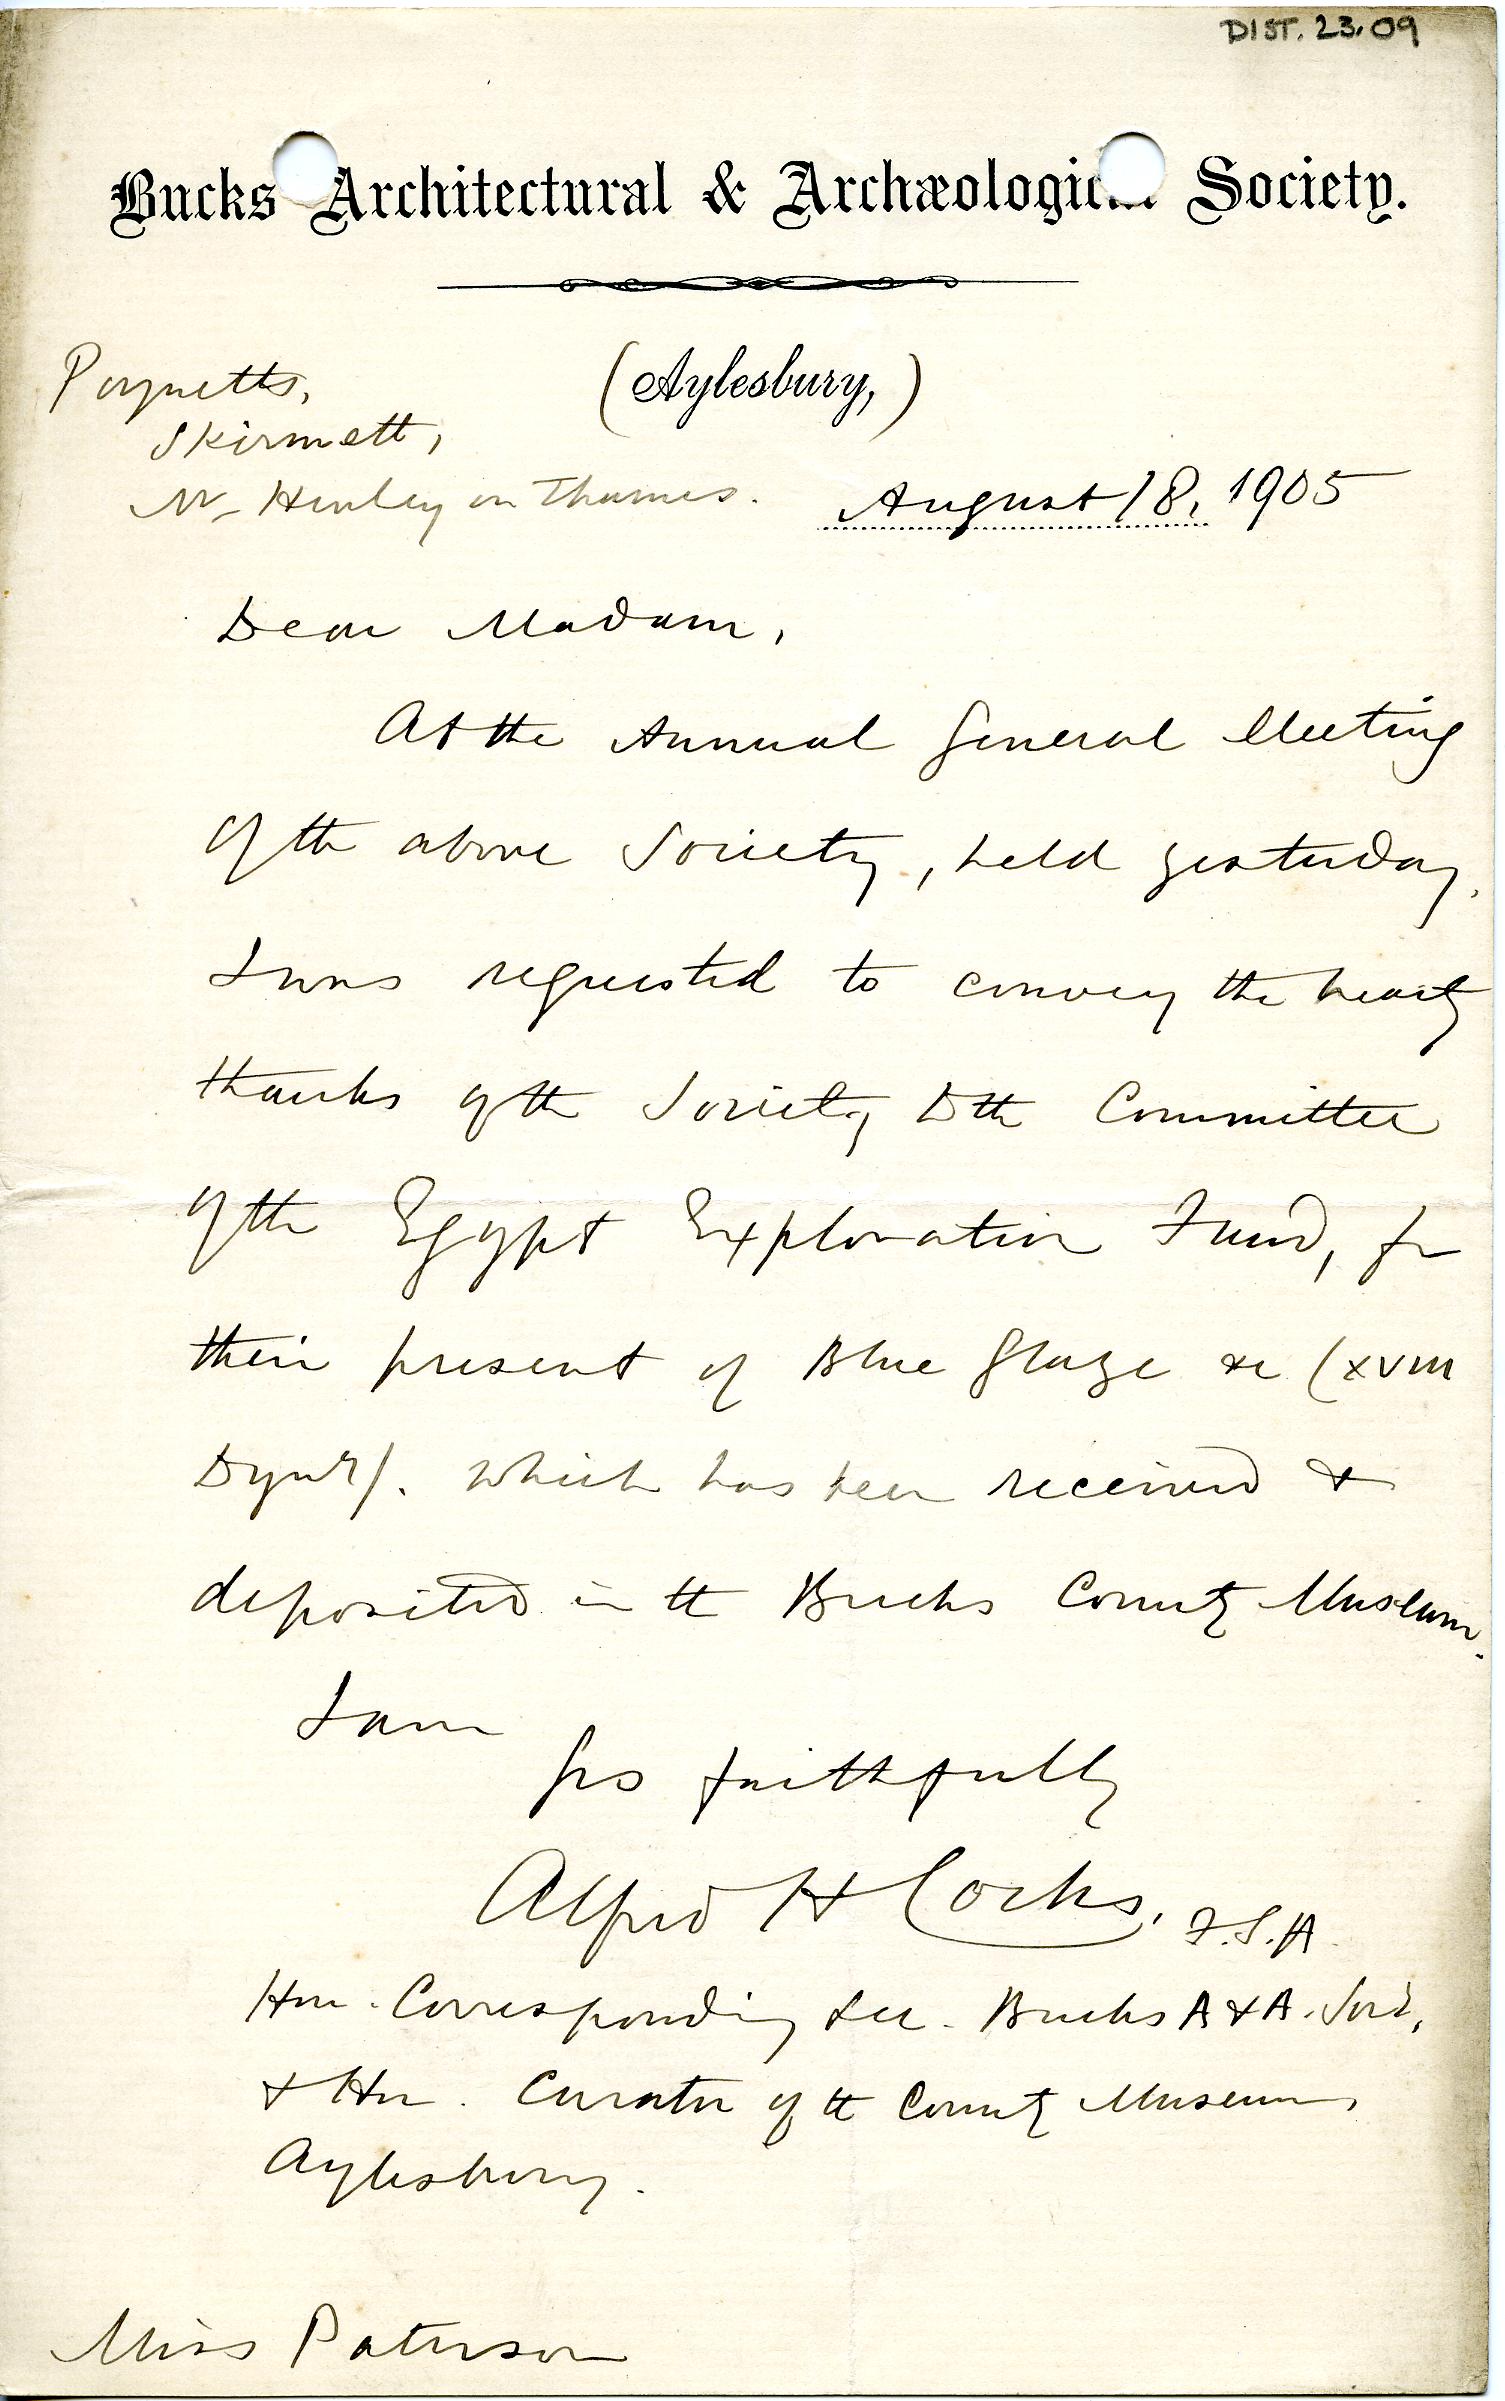 DIST. 23.09
Bucks Architectural & Archæologic Society.
Poynetts,
(Aylesbury,)
Skirmett,
Nr Henley on Thames.
August 18, 1905
Dear Madam,
At the Annual General Meeting
of the above Society, held yesterday,
I was requested to convey the hearty
thanks of the Society to the Committee
of the Egypt Exploration Fund, for
their present of Blue Glaze &c (XVIII
Dynty). which has been received &
deposited in the Bucks County Museum.
I am
Yrs faithfully
Alfred H Cocks, F.S.A
Hon. Corresponding Sec. Bucks A & A. Socy,
& Hon. Curator of the County Museum,
Aylesbury.
Miss Paterson